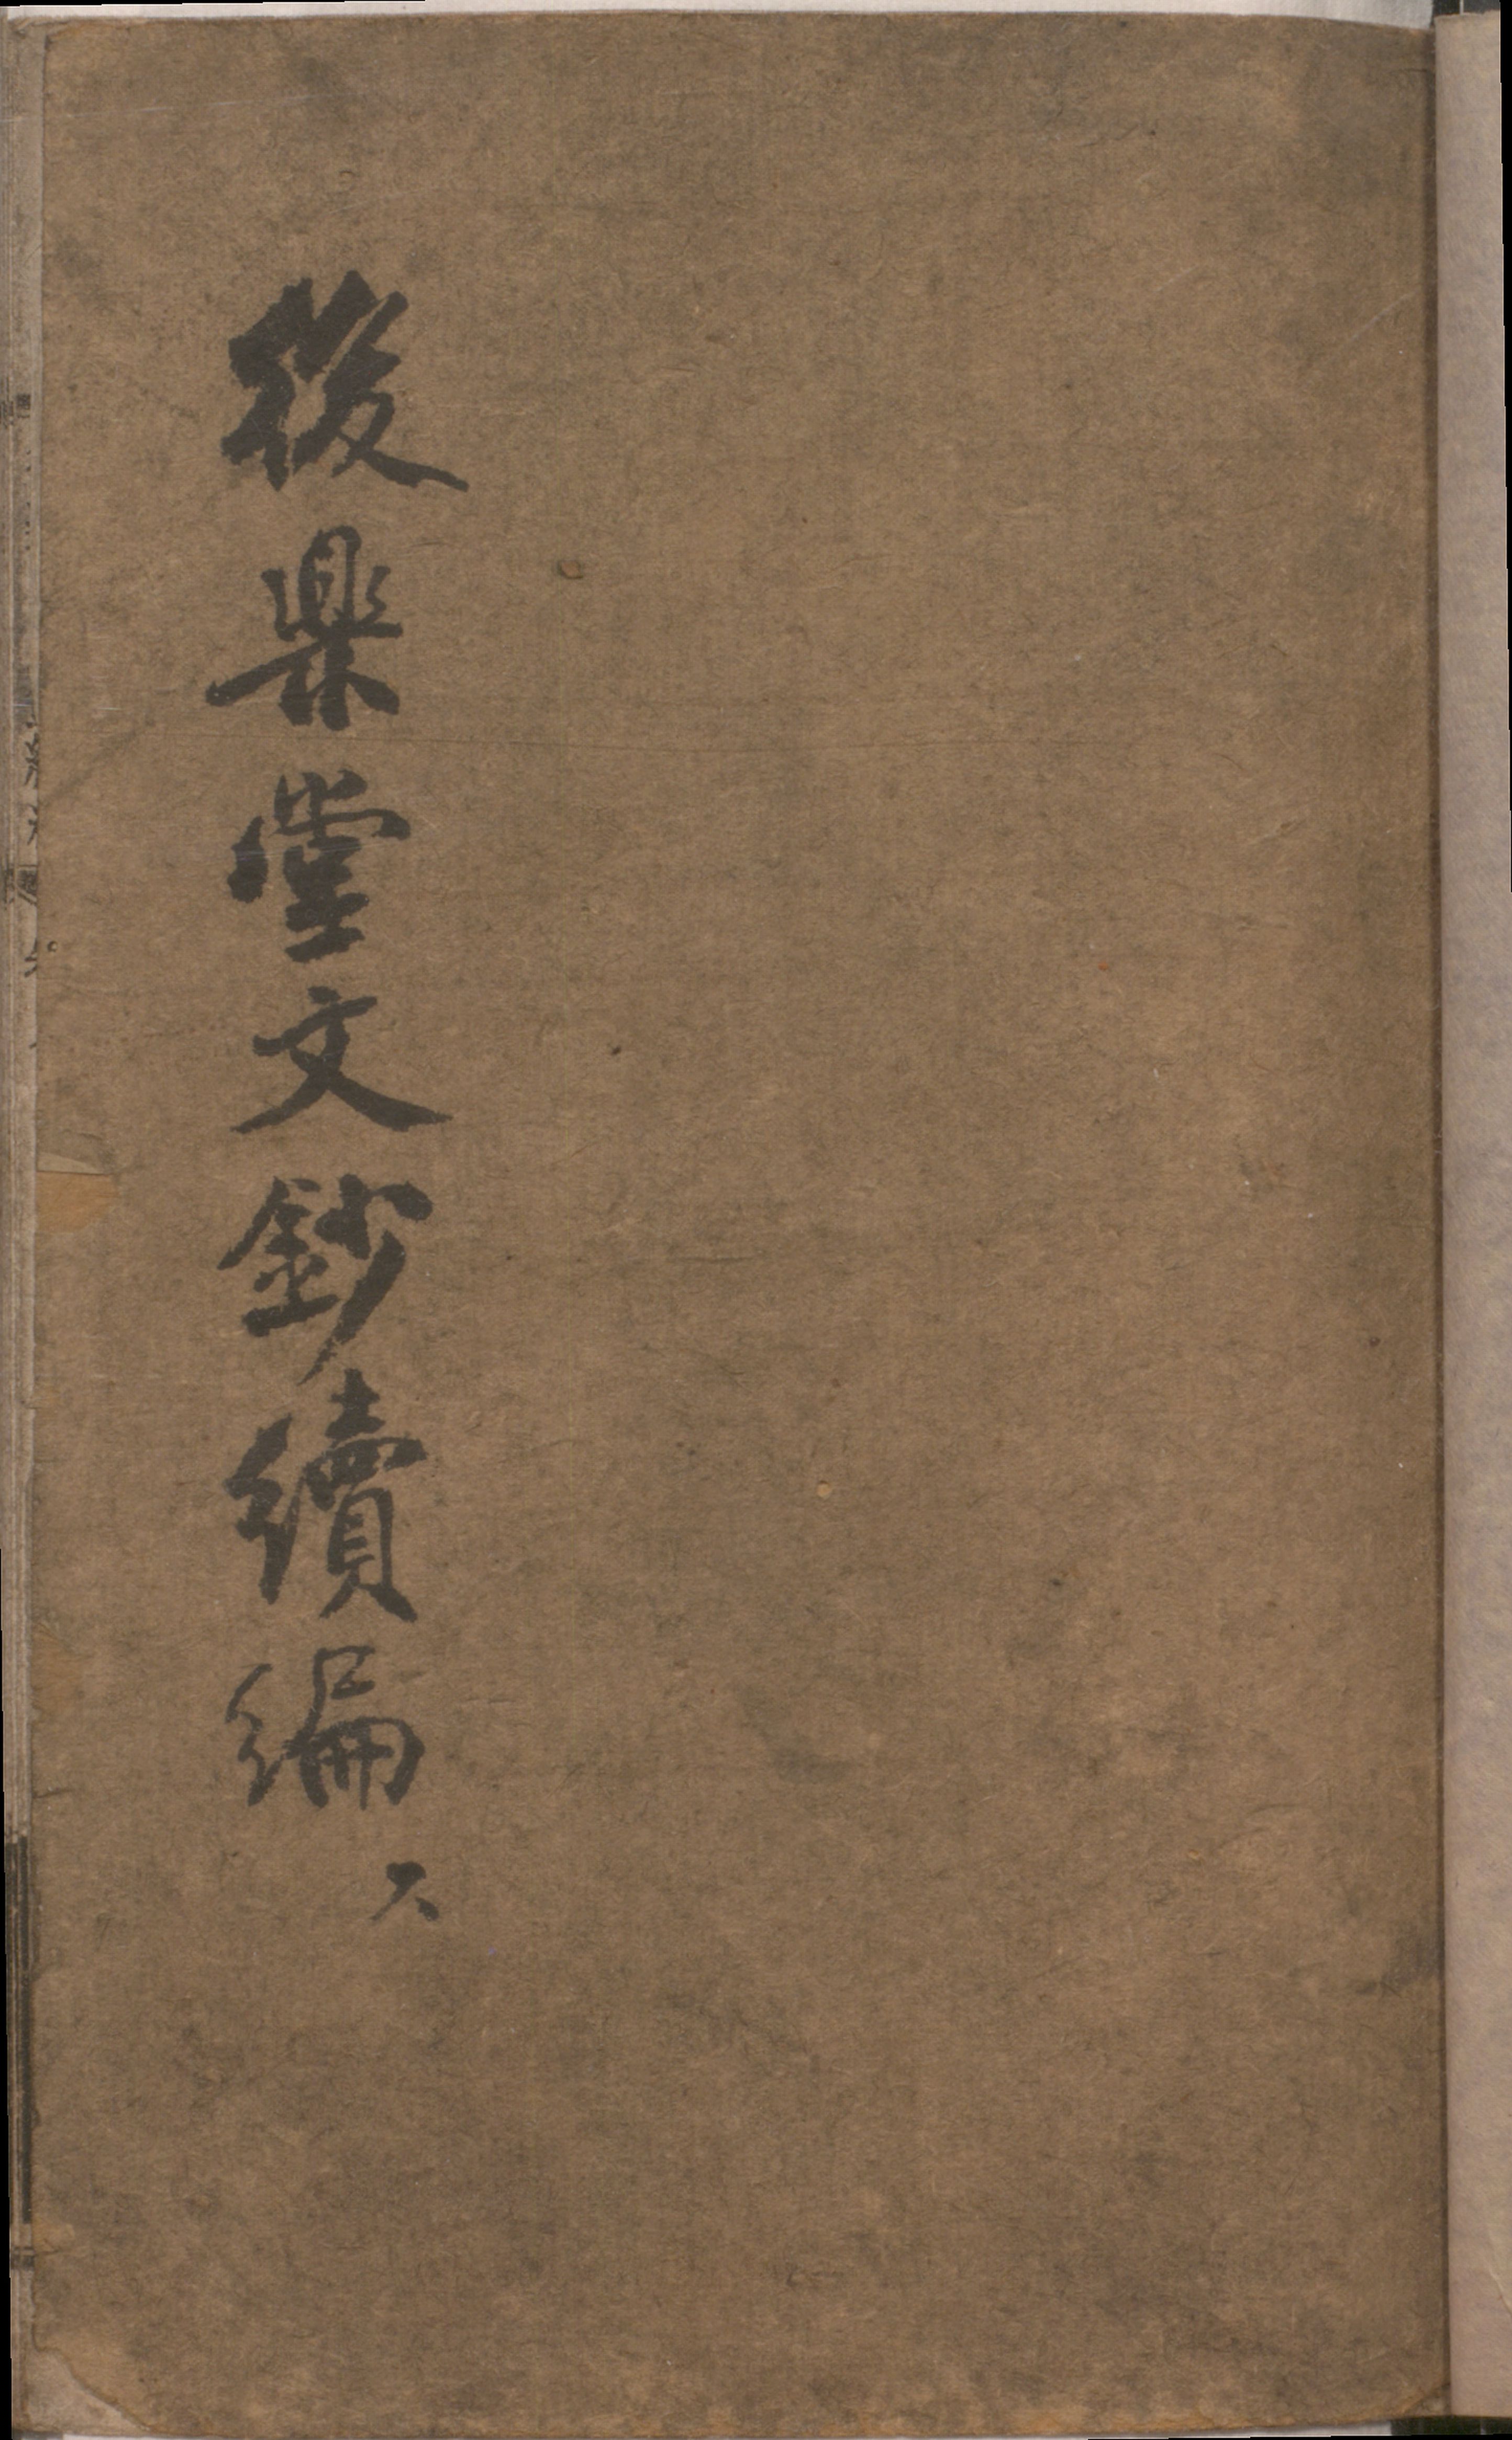 後樂堂文鈔續編